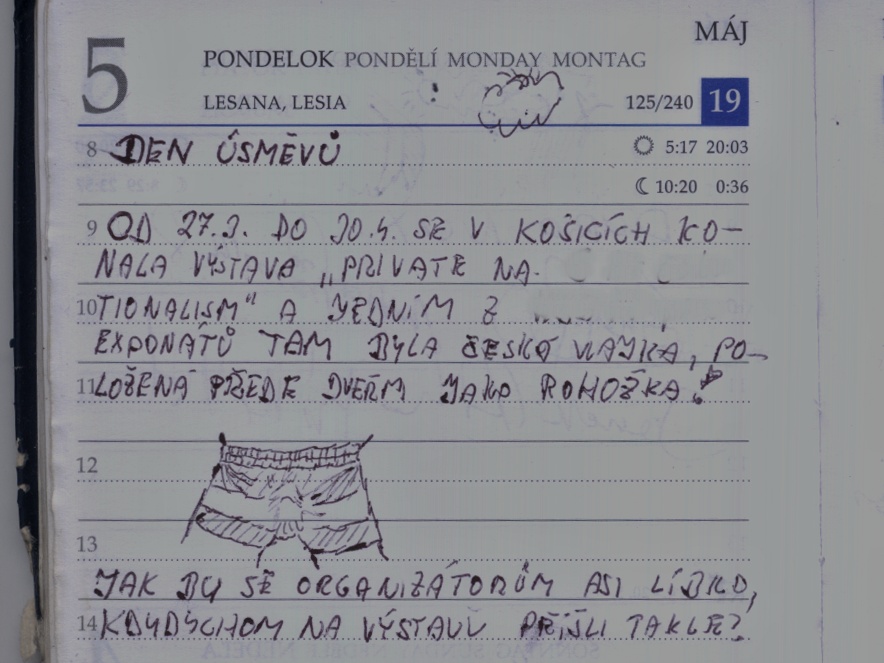 MÁJ
5 PONDELOK PONDĚLÍ MONDAY MONTAG
LESANA, LESIA 125/240 19
8 DEN ÚSMĚVŮ 5:17 20:03
10:20 0:36
9 OD 27.3. DO 30.4. SE V KOŠICÍCH KO–
NALA VÝSTAVA „PRIVATE NA-
10 TIONALISM" A JEDNÍM Z
EXPONÁTŮ TAM BYLA ČESKÁ VLAJKA, PO–
11 LOŽENÁ PŘEDE DVEŘM JAKO ROHOŽKA!
12
13
JAK BY SE ORGANIZÁTORŮM ASI LÍBILO,
14 KDYBYCHOM NA VÝSTAVU PŘIŠLI TAKLE?